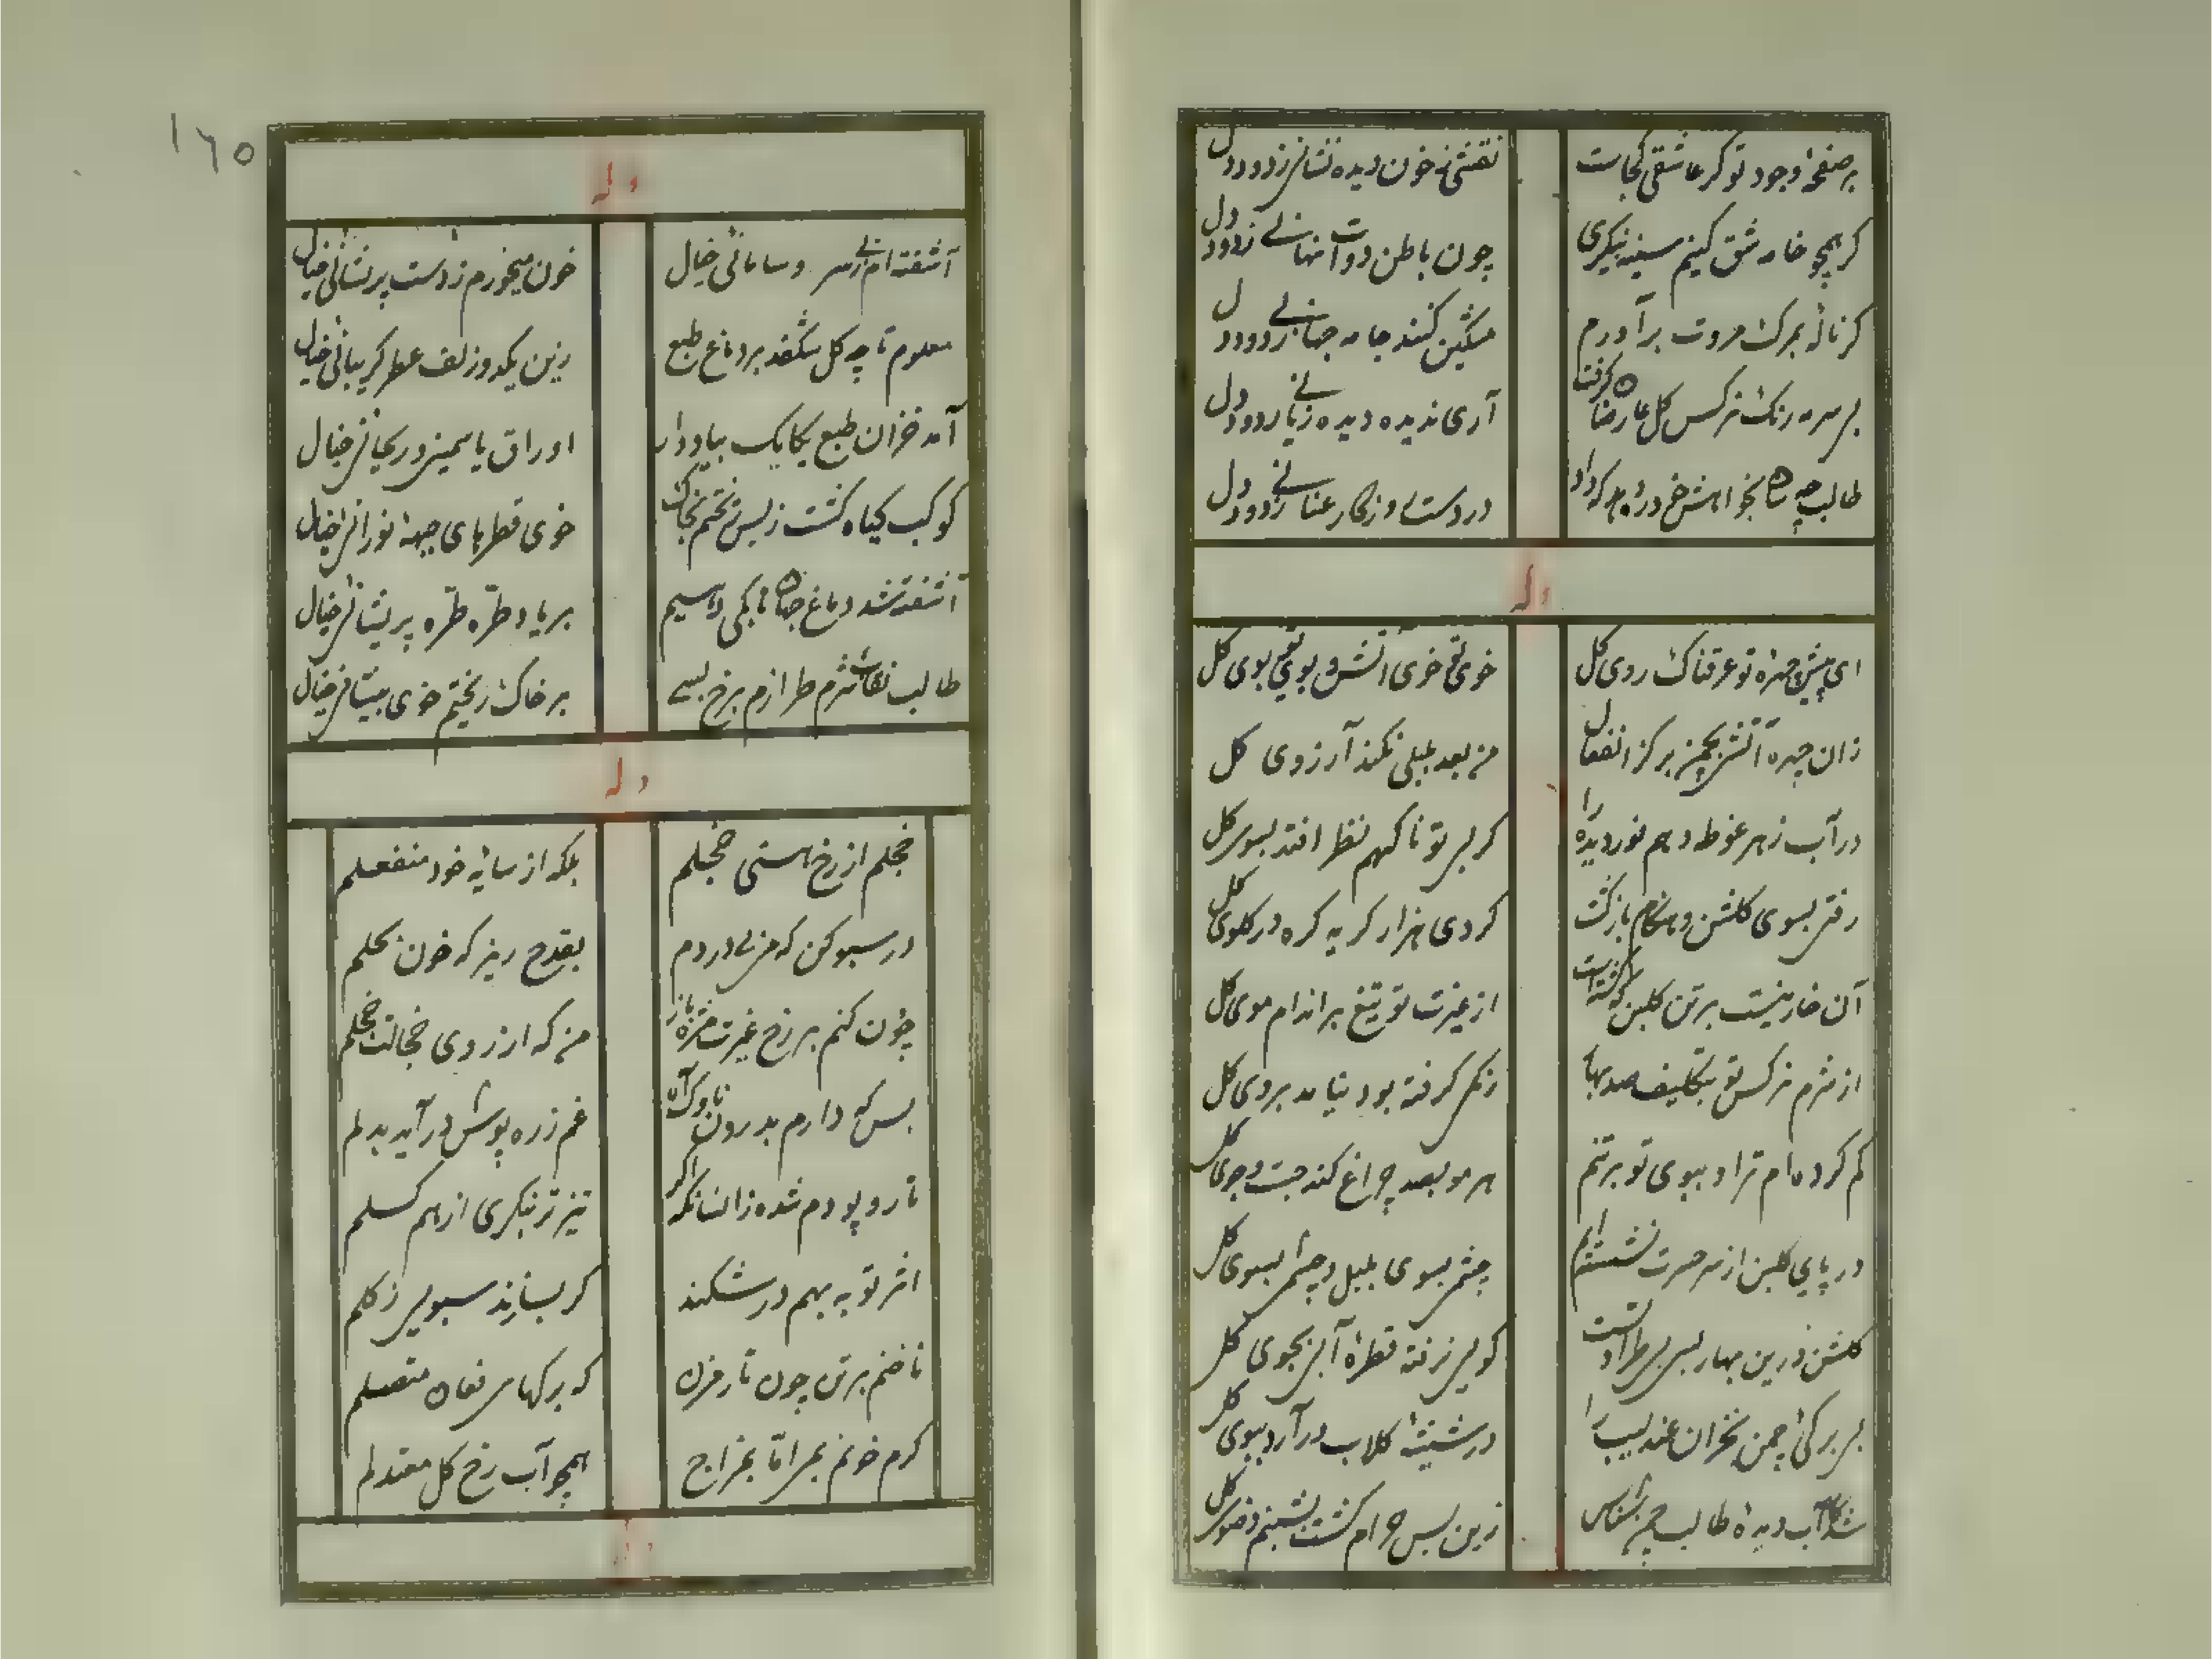 بر صفحهٔ وجود تو گر عاشقی کجاست
نقشی ز خون دیده نشانی ز دود دل
گر همچو خامه شق کنیم سینه بنگری
چون باطن دوات نهانی ز دود دل
گر نالهٔ بمرک مروت برآورم
مشکین کنند جامه جهانی ز دود دل
بی سرمه رنک نرکس کل عارضان گرفت
آری ندیده دیده زیانی ز دود دل
در دست روزگار عنانی ز دود دل
وله
ای پیش چهره تو عرقناک روی کل
خوی تو خوی آتش و بوی تو بوی کل
زان چهره آتشی بچمن بر کز انفعال
من بعد بلبلی نکند آرزوی کل
در آب زهر غوطه دهم نور دیده را
کر بی تو ناکهم نظر افتد بسوی کل
رفتی بسوی کلشن و هنگام بازگشت
کردی هزار کریه کره در کلوی کل
آن خار نیست بر تن کلبن که کشته است
از غیرت تو تیغ بر اندام موی کل
از شرم نرکس تو بتکلیف صد بهار
رنکی کرفته بود نیامد بروی کل
کم کرده‌ام ترا و ببوی تو بر تنم
هر مو بصد چراغ کند جست و جوی کل
در پای کلبن از سر حسرت نشسته‌ایم
چشمی بسوی بلبل و چشمی بسوی کل
کلشن درین بهار بسی بی طراوتست
کویی نرفته قطرهٔ آبی بجوی کل
بی برکی چمن بخزان عندلیب را
در شیشهٔ کلاب درآرد ببوی کل
آب دیدهٔ طالب چمن شناس
زین پس حرام کشت بشبنم وضوی کل
۱۶۵
وله
آشفته‌ام ز بی سر و سامانی خیال
خون میخورم ز دست پریشانی خیال
معلوم تا چه کل شکفد بر دماغ طبع
زین یکدو زلف عطر کریبانی خیال
آمد خزان طبع یکایک بباد داد
اوراق یاسمین و ریحانی خیال
کوکب کیاه کشت ز بس تخم بخاک
خوی قطرهای جبههٔ نورانی خیال
آشفته شد دماغ جهان
بر یاد طره طره پریشانی خیال
طالب نقاب شرم طرازم برخ بسی
بر خاک ریختم خوی پیشانی خیال
وله
خجلم از رخ هستی خجلم
بلکه از سایهٔ خود منفعلم
در سبو کن که می بی دردم
بقدح ریز که خون بحلم
چون کنم بر رخ غیرت مژه باز
من که از روی خجالت خجلم
بس که دارم بدرون ناوک آه
غم زره پوش درآید بدلم
تار و پودم شده زانسانکه اگر
تیز تر بنگری از هم کسلم
اثر توبه بهم درشکند
کر بسازند سبویی ز کلم
ناخنم بر تن چون تار مزن
که برکهای فغان متصلم
کرم خونم بمراقا بمزاج
همچو آب رخ کل معتدلم
وله